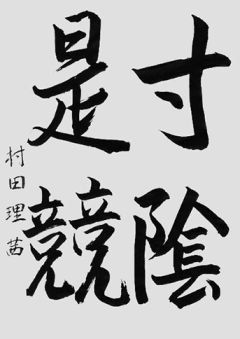 寸陰
是競
村田理茜